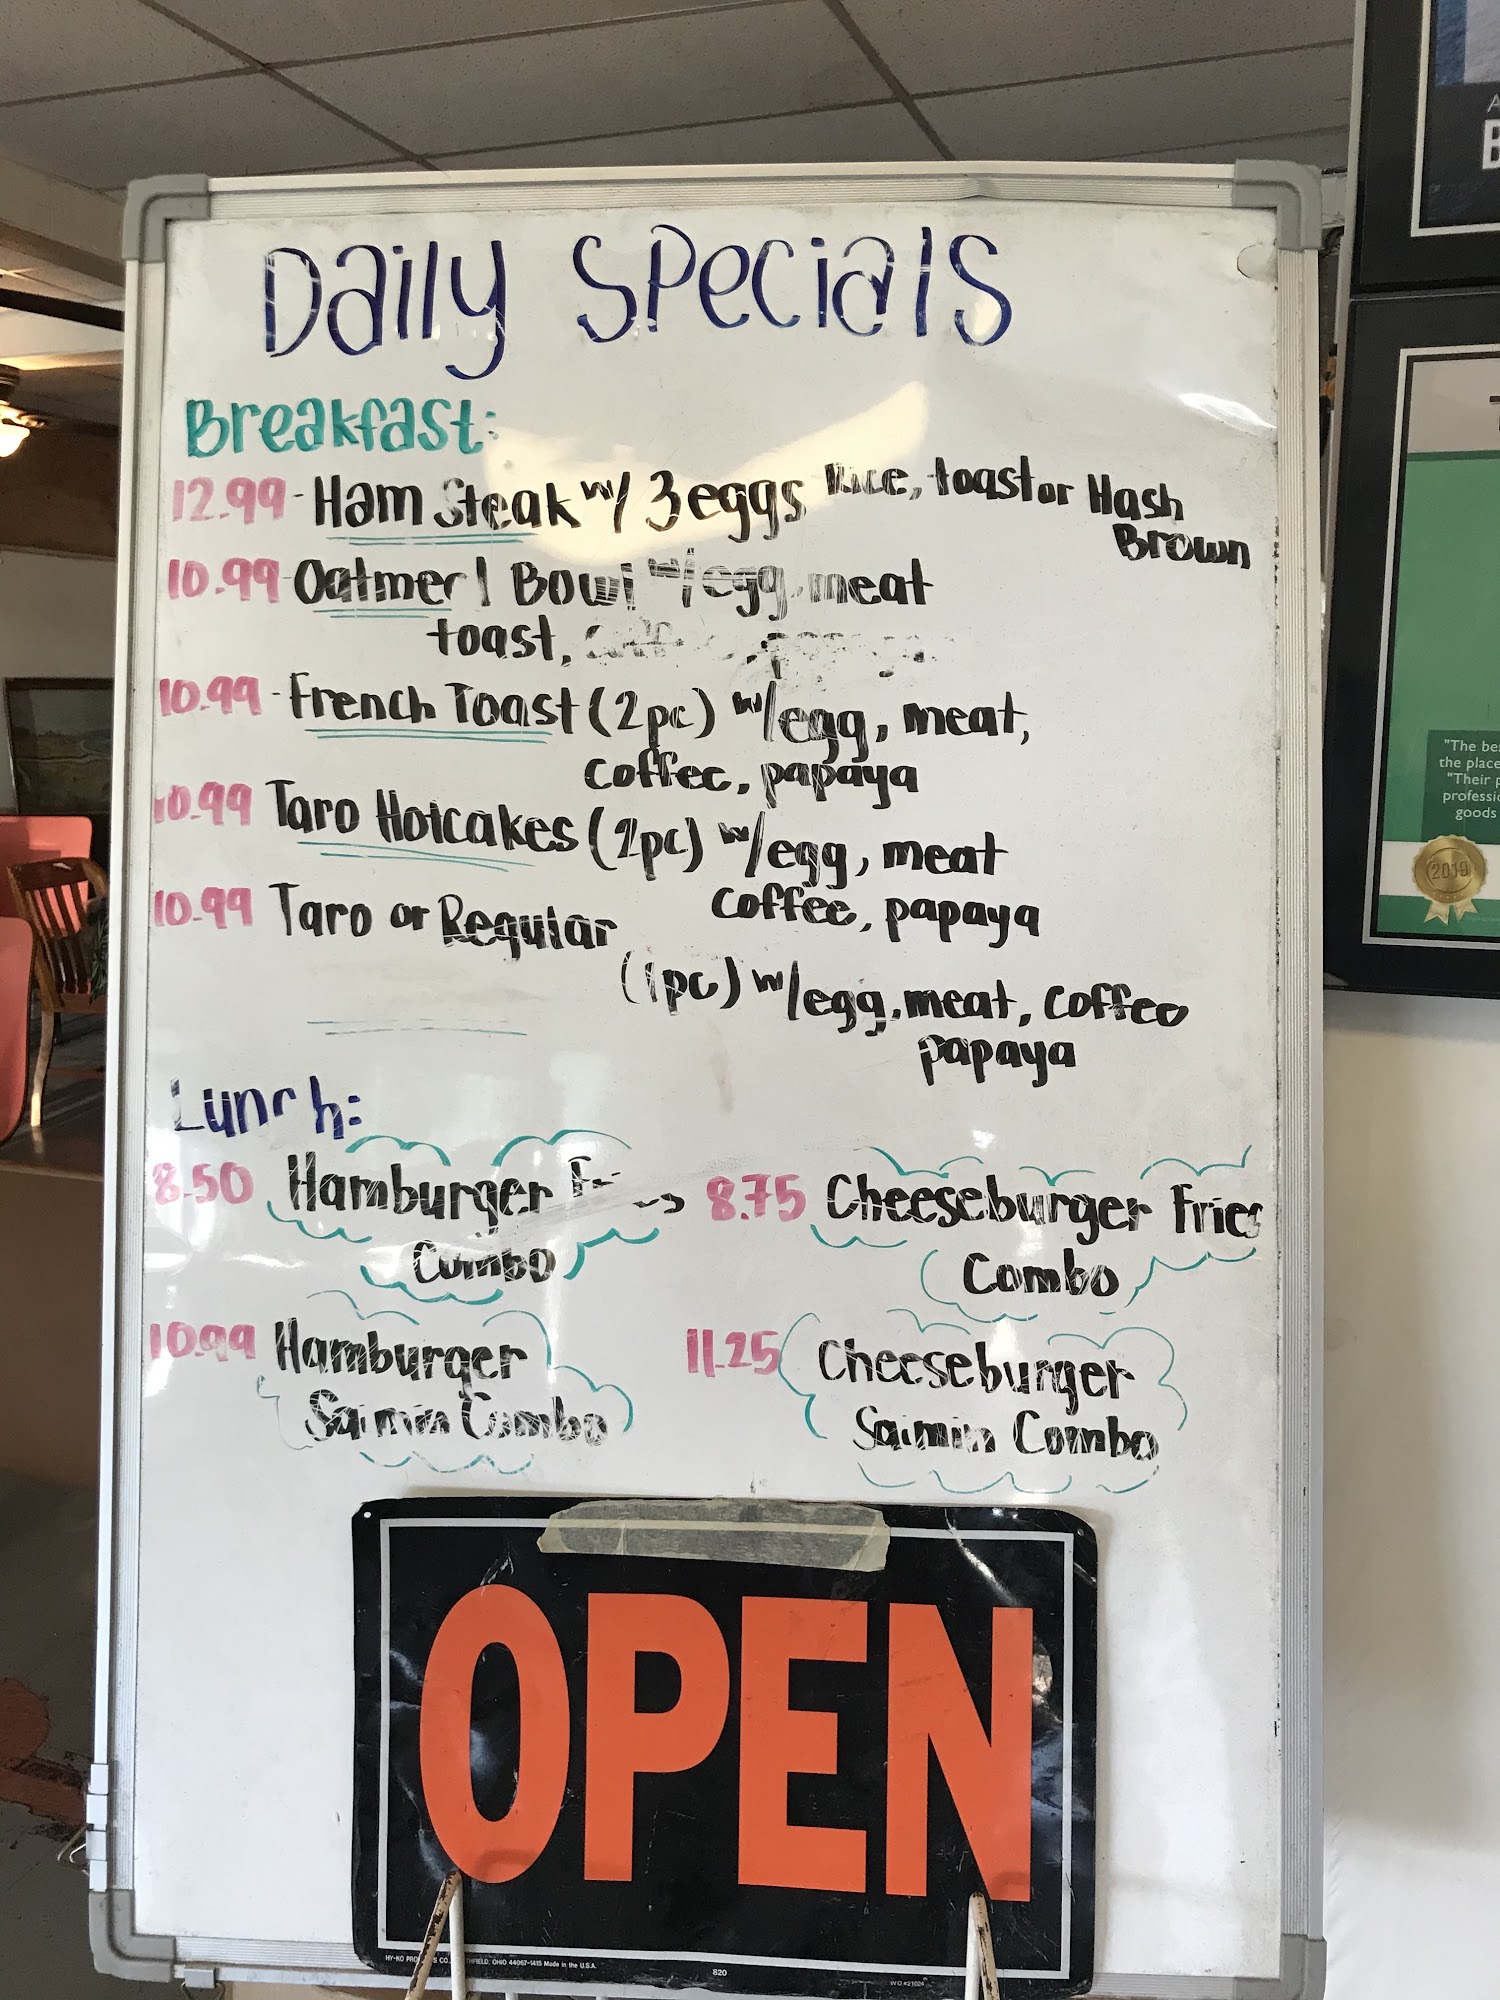 Daily Specials
Breakfast:
12.99 - Ham Steak w/ 3 eggs Rice, toast or Hash
Brown
10.99 - Oatmeal Bowl w/egg, meat
toast,
10.99 - French Toast (2pc) w/egg, meat,
coffee, papaya
10.99 Taro Hotcakes (2pc) w/egg, meat
coffee, papaya
10.99 Taro or Regular
(1pc) w/egg, meat, coffee
papaya
Lunch:
8.50 Hamburger Fries
Combo
8.75 Cheeseburger Fries
Combo
10.99 Hamburger
Saimin Combo
11.25 Cheeseburger
Saimin Combo
OPEN
OHIO 44067-1415 Made in the U.S.A.
820
"The
the place
"Their
goods
2019